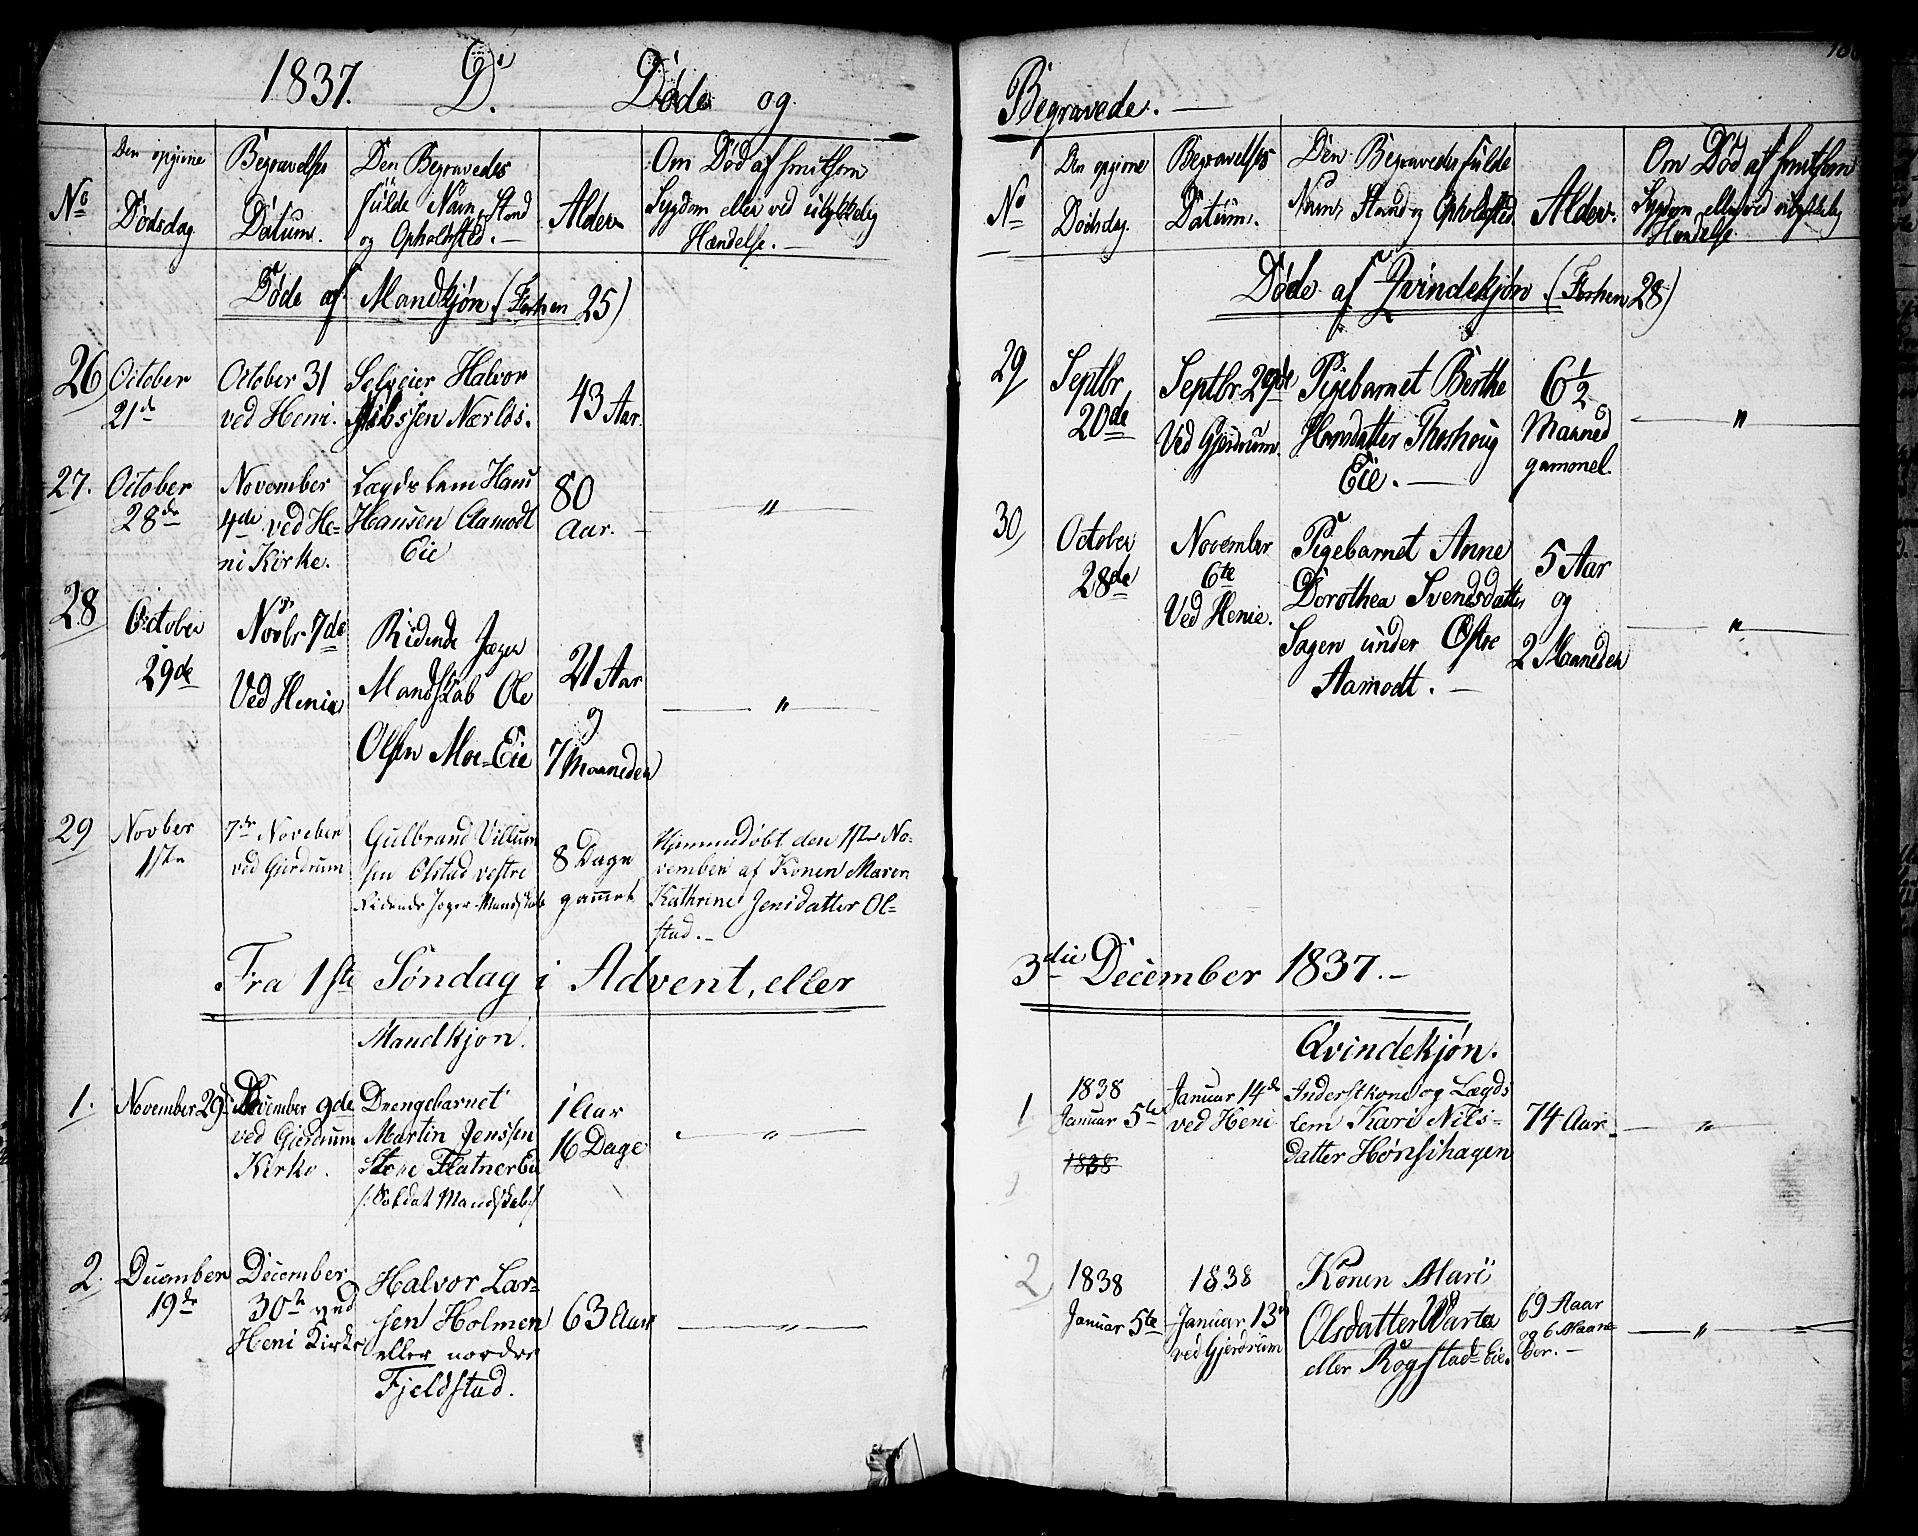 1837. D. Døde og
Den opgivne Dødsdag
Begravelses Datum.
Den Begravedes
fulde Navn, Stand
og Opholdsted. —
Alder
Om Død af smitsom
Sygdom eller ved ulykkelig
Hændelse. —
No
Døde af Mandkjøn (Forhen 25)
26 October
21de
October 31
ved Heni.
Selveier Halvor
Nærlds.
43 Aar.
27. October
28de
November
4de ved He-
ni Kirke.
Lægdslem Hans
Hansen Aamodt
Eie
80
Aar.
"
28 October
29de
Novbr 7de
Ved Henie
Ridende Jæger
Mandskab Ole
Olsen Moe-Eie
21 Aar
og
7 Maaneder
"
29 Novber
1ste
7de Noveber
ved Gjerdrum
Gulbrand Villum
sen Olstad vestre
Ridende Jæger-Mandskab
8 Dage
gammel
Hjemmedøbt den 1ste No-
vember af Konen Maren
Kathrine Jensdatter Ol-
stad. -
Fra 1ste Søndag i Advent, eller
Mandkjøn.
1. November 29de
December 9de
ved Gjerdrum
Kirke.
Drengebarnet
Martin Jenssen
Store Flatner Eie
/: Soldat Mandskab :/
1 Aar
16 Dage
"
2. December
19de
December
30te ved
Heni Kirke
Halvor Lar-
sen Holmen
eller nordre
Fjeldstad.
63 Aar
"
Begravede. —
No
Den opgivne
Dødsdag.
Begravelses
Datum.
Den Begravedes fulde
Navn, Stand og Opholdsted.
Alder.
Om Død af smitsom
Sygdom eller ved ulykkelig
Hændelse.
Døde af Qvindekjøn (Forhen 28)
29 Septbr
20de
Septbr 29de
Ved Gjerdrum.
Pigebarnet Berthe
Hansdatter Thoshoug
Eie. —
6 1/2
Maaned
gammel.
"
30 October
28de
November
6te
Ved Henie.
Pigebarnet Anne
Dorothea Svendsdatter
Sagen under Østre
Aamodt. —
5 Aar
og
2 Maaneder
"
3die December 1837. -
Qvindekjøn.
1 1838
Januar 5te
1838
Januar 14de
ved Heni
Inderstkone og Lægds
lem Kari Nils-
datter Hønsihagen
74 Aar
"
2 1838
Januar 5te
1838
Januar 13de
ved Gjerdrum
Konen Mari
Olsdatter Warta
eller Rogstad-Eie.
69 Aaar
og 6 Maane
der. —
"